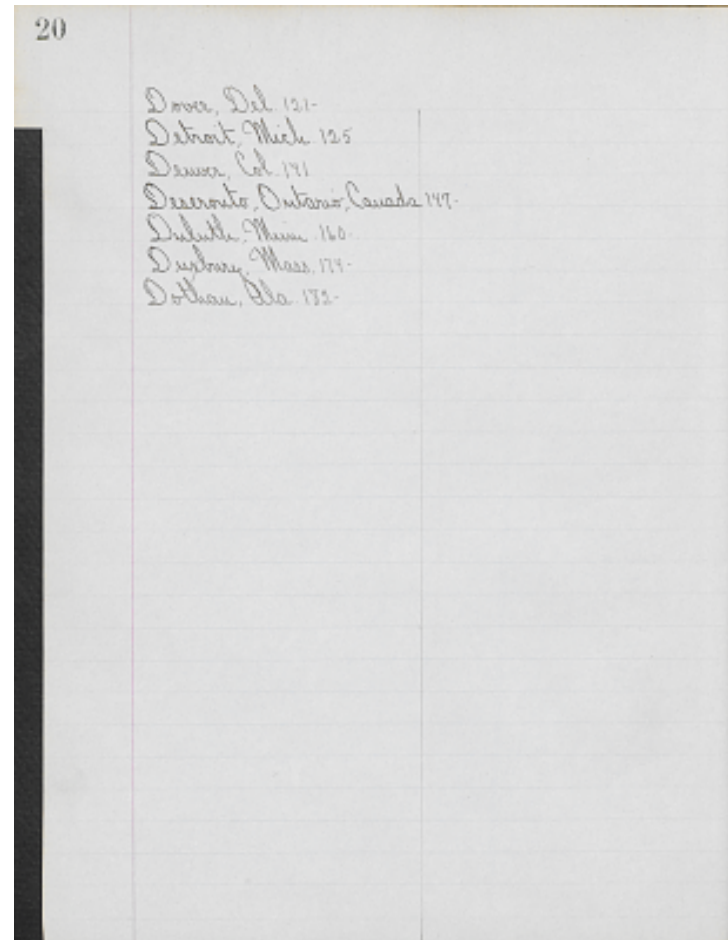 20
Dover, Del. 121-
Detroit, Mich. 125
Denver, Col. 141
Deseronto, Ontario, Canada 147-
Duluth, Minn. 160-
Duxbury, Mass. 174-
Dothan, Ala. 182-